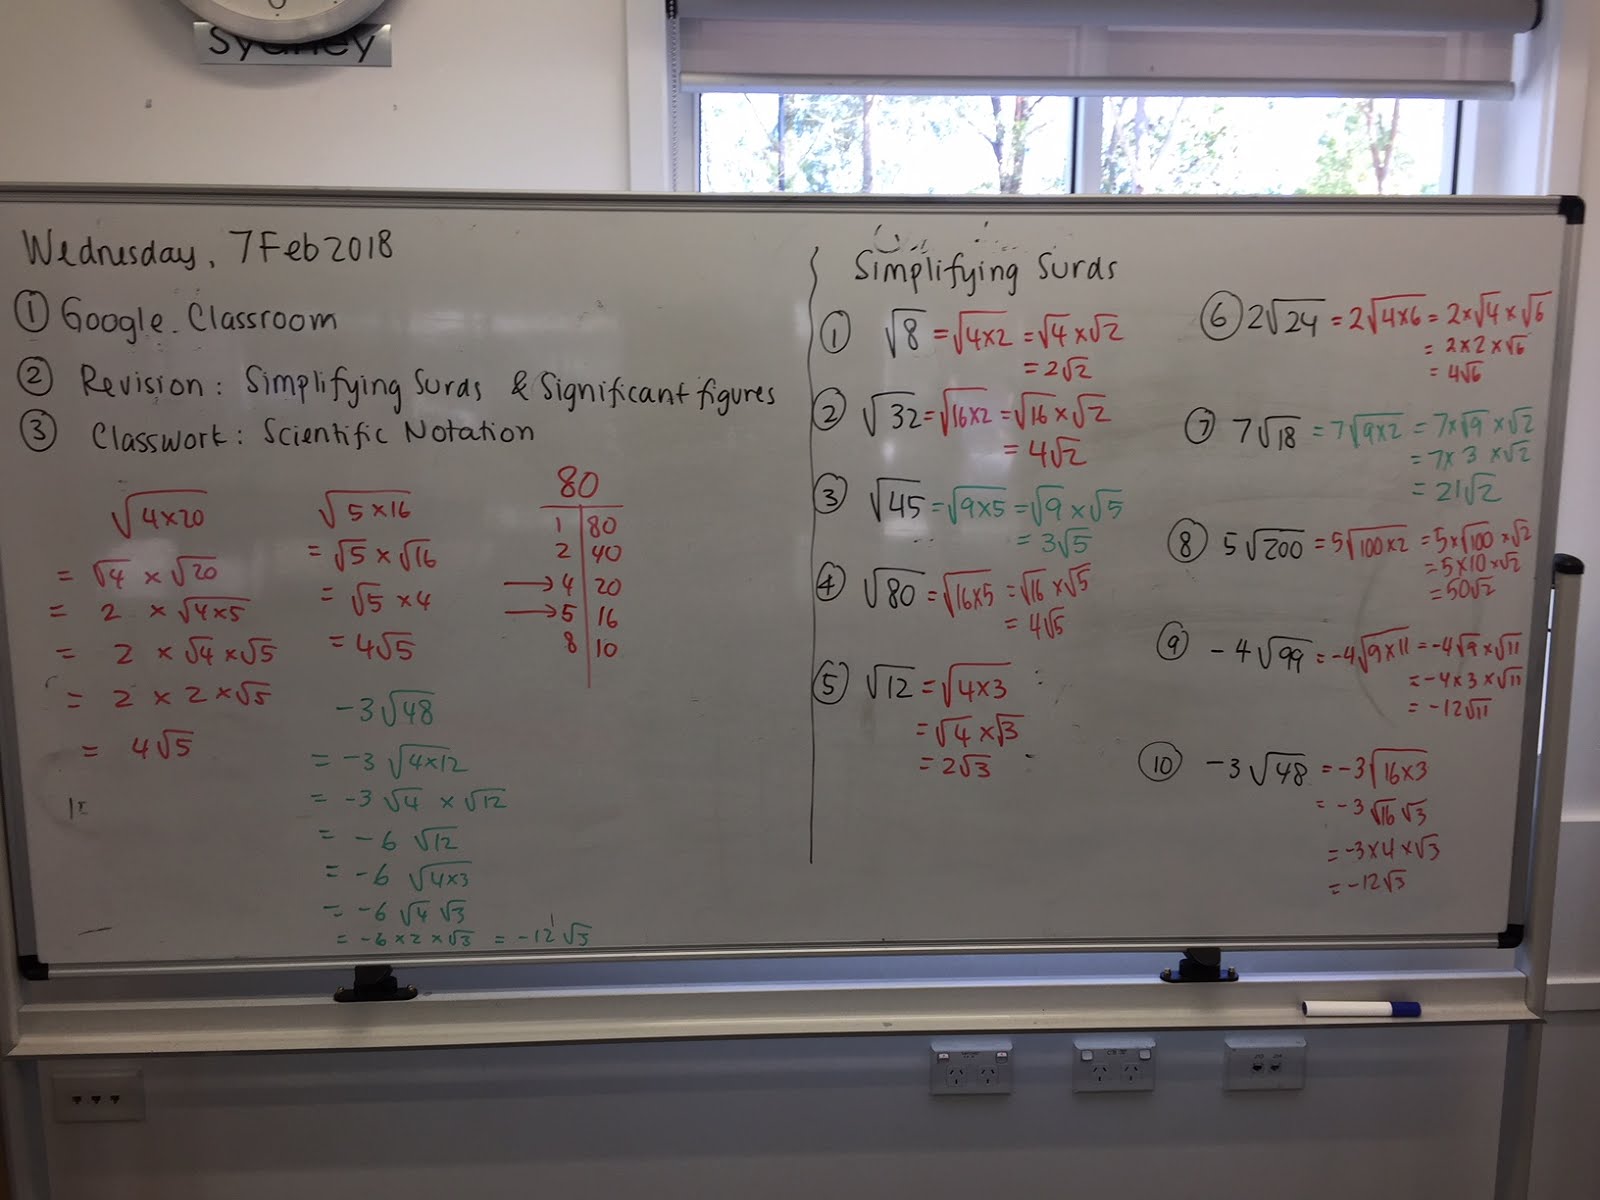 Sydney
Wednesday, 7 Feb 2018
① Google Classroom
② Revision: Simplifying Surds & Significant figures
③ Classwork: Scientific Notation
√4×20
= √4 × √20
= 2 × √4×5
= 2 × √4 × √5
= 2 × 2 × √5
= 4√5
√5×16
= √5 × √16
= √5 × 4
= 4√5
80
1 | 80
2 | 40
→ 4 | 20
→ 5 | 16
8 | 10
-3√48
= -3 √4×12
= -3 √4 × √12
= -6 √12
= -6 √4×3
= -6 √4 √3
= -6×2×√3 = -12√3
Simplifying Surds
① √8 = √4×2 = √4 × √2
= 2√2
② √32 = √16×2 = √16 × √2
= 4√2
③ √45 = √9×5 = √9 × √5
= 3√5
④ √80 = √16×5 = √16 × √5
= 4√5
⑤ √12 = √4×3
= √4 × √3
= 2√3
⑥ 2√24 = 2√4×6 = 2×√4 × √6
= 2×2×√6
= 4√6
⑦ 7√18 = 7√9×2 = 7×√9 × √2
= 7×3×√2
= 21√2
⑧ 5√200 = 5√100×2 = 5×√100 × √2
= 5×10×√2
= 50√2
⑨ -4√99 = -4√9×11 = -4√9 × √11
= -4×3×√11
= -12√11
⑩ -3√48 = -3√16×3
= -3√16 √3
= -3×4×√3
= -12√3